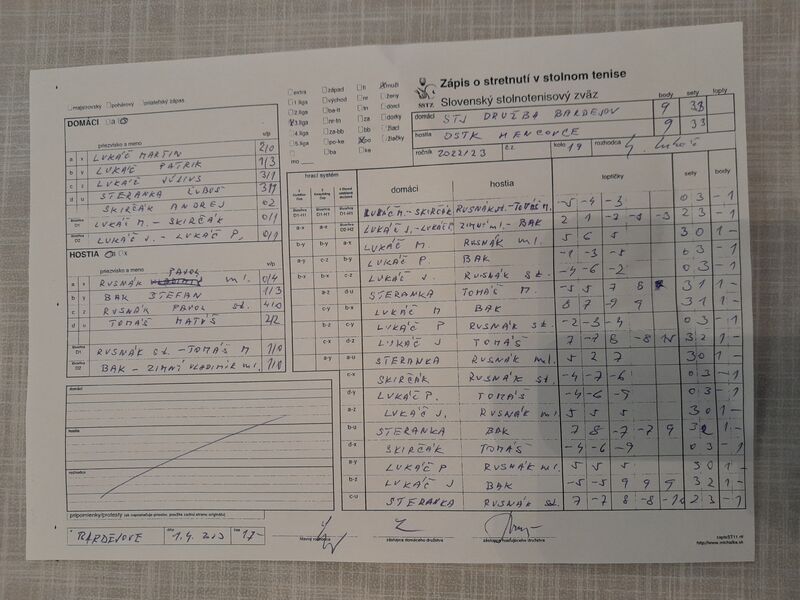 Zápis o stretnutí v stolnom tenise
Slovenský stolnotenisový zväz
SSTZ
majstrovský pohárový priateľský zápas
extra západ muži
1.liga východ nr ženy
2.liga
3.liga
4.liga
5.liga
body sety lopty
domáci STJ DRUŽBA BARDEJOV 9 38
hostia OSTK HENCOVCE 9 33
ročník 2022/23 č.z. kolo 19 rozhodca
DOMÁCI
priezvisko a meno v/p
a x LUKÁČ MARTIN 2/0
b y LUKÁČ PATRIK 1/3
c z LUKÁČ JÚLIUS 3/1
d u STERANKA ĽUBOŠ 3/1
SKIRČÁK ANDREJ 0/2
D1 LUKÁČ M. - SKIRČÁK 0/1
D2 LUKÁČ J. - LUKÁČ P. 0/1
HOSTIA
priezvisko a meno v/p
PAVOL
a x RUSNÁK ml. 0/4
b y BAK ŠTEFAN 1/3
c z RUSNÁK PAVOL st. 4/0
d u TOMÁŠ MATÚŠ 2/2
D1 RUSNÁK st. - TOMÁŠ M 1/0
D2 BAK - ZIMNÝ VLADIMÍR ml. 1/0
hrací systém
domáci hostia loptičky sety body
LUKÁČ M. - SKIRČÁK RUSNÁK st. - TOMÁŠ M. -5 -4 -3 0 3 - 1
LUKÁČ J. - LUKÁČ ZIMNÝ ml. - BAK 2 1 -7 -5 -3 2 3 - 1
LUKÁČ M. RUSNÁK ml. 5 6 5 3 0 1 -
LUKÁČ P. BAK -1 -3 -5 0 3 - 1
LUKÁČ J. RUSNÁK st. -4 -6 -2 0 3 - 1
STERANKA TOMÁŠ M. -5 5 7 8 3 1 1 -
LUKÁČ M BAK 8 7 -9 9 3 1 1 -
LUKÁČ P RUSNÁK st. -2 -3 -4 0 3 - 1
LUKÁČ J TOMÁŠ 7 -8 8 -8 15 3 2 1 -
STERANKA RUSNÁK ml. 5 2 7 3 0 1 -
SKIRČÁK RUSNÁK st. -4 -7 -6 0 3 - 1
LUKÁČ P. TOMÁŠ -4 -6 -9 0 3 - 1
LUKÁČ J. RUSNÁK ml 5 5 5 3 0 1 -
STERANKA BAK 7 8 -7 -7 9 3 2 1 -
SKIRČÁK TOMÁŠ -4 -6 -9 0 3 - 1
LUKÁČ P RUSNÁK ml. 5 5 5 3 0 1 -
LUKÁČ J BAK -5 -5 9 9 9 3 2 1 -
STERANKA RUSNÁK st. 7 -7 8 -8 -10 2 3 - 1
domáci
hostia
rozhodca
pripomienky/protesty (ak nepostačuje priestor, použite zadnú stranu originálu)
v BARDEJOVE dňa 1.4.2023 čas 17-
hlavný rozhodca
zástupca domáceho družstva
zástupca hosťujúceho družstva
http://www.michalka.sk